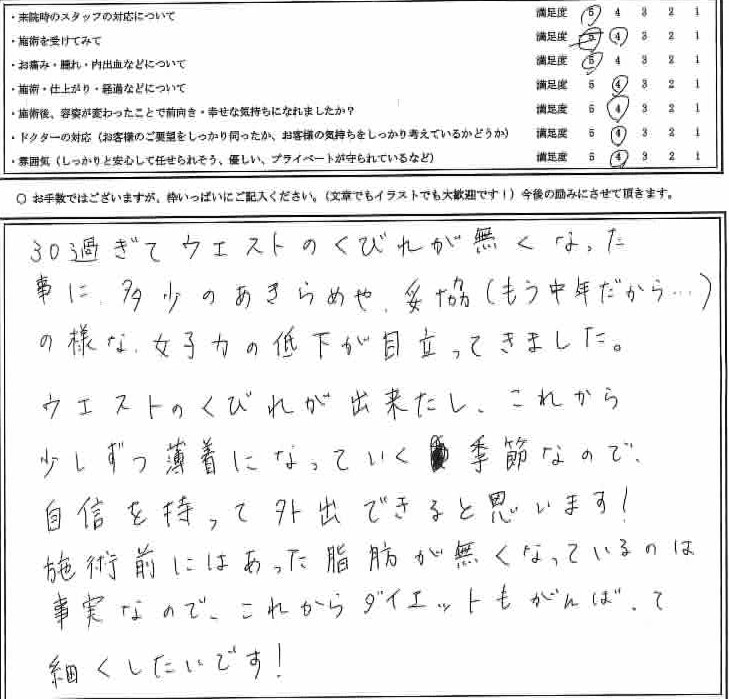 ・来院時のスタッフの対応について 満足度 5 4 3 2 1
・施術を受けてみて 満足度 5 4 3 2 1
・お痛み・腫れ・内出血などについて 満足度 5 4 3 2 1
・施術・仕上がり・経過などについて 満足度 5 4 3 2 1
・施術後、容姿が変わったことで前向き・幸せな気持ちになれましたか？ 満足度 5 4 3 2 1
・ドクターの対応（お客様のご要望をしっかり伺ったか、お客様の気持ちをしっかり考えているかどうか） 満足度 5 4 3 2 1
・雰囲気（しっかりと安心して任せられそう、優しい、プライベートが守られているなど） 満足度 5 4 3 2 1
○ お手数ではございますが、枠いっぱいにご記入ください。（文章でもイラストでも大歓迎です！）今後の励みにさせて頂きます。
30過ぎてウエストのくびれが無くなった
事に、多少のあきらめや、妥協(もう中年だから…)
の様な、女子力の低下が目立ってきました。
ウエストのくびれが出来たし、これから
少しずつ薄着になっていく季節なので、
自信を持って外出できると思います!
施術前にはあった脂肪が無くなっているのは
事実なので、これからダイエットもがんばって
細くしたいです!